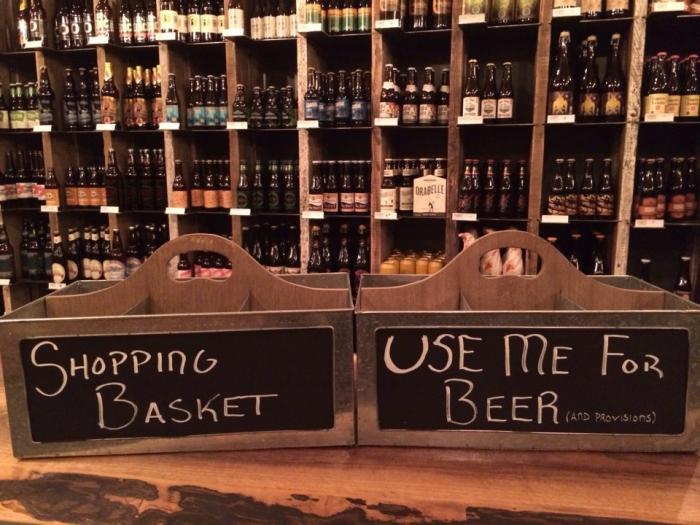 ORABELLE
SHOPPING
BASKET
USE ME FOR
BEER (AND PROVISIONS)